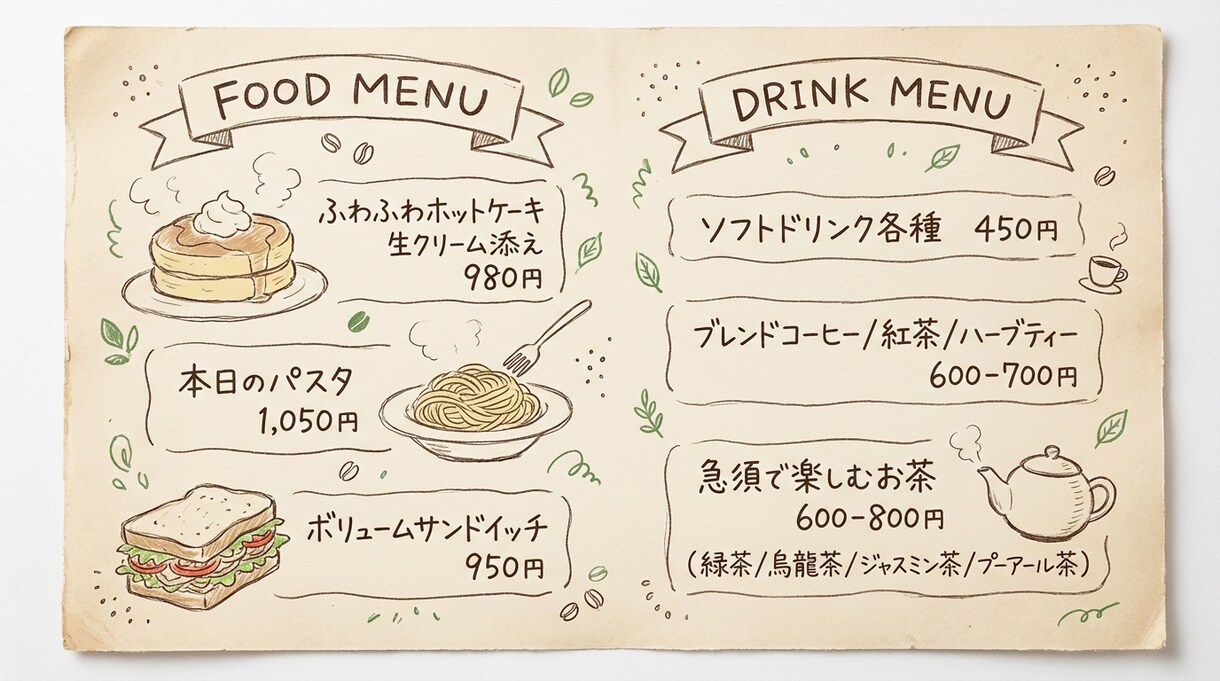 FOOD MENU
ふわふわホットケーキ
生クリーム添え
980円
本日のパスタ
1,050円
ボリュームサンドイッチ
950円
DRINK MENU
ソフトドリンク各種 450円
ブレンドコーヒー/紅茶/ハーブティー
600-700円
急須で楽しむお茶
600-800円
(緑茶/烏龍茶/ジャスミン茶/プーアール茶)